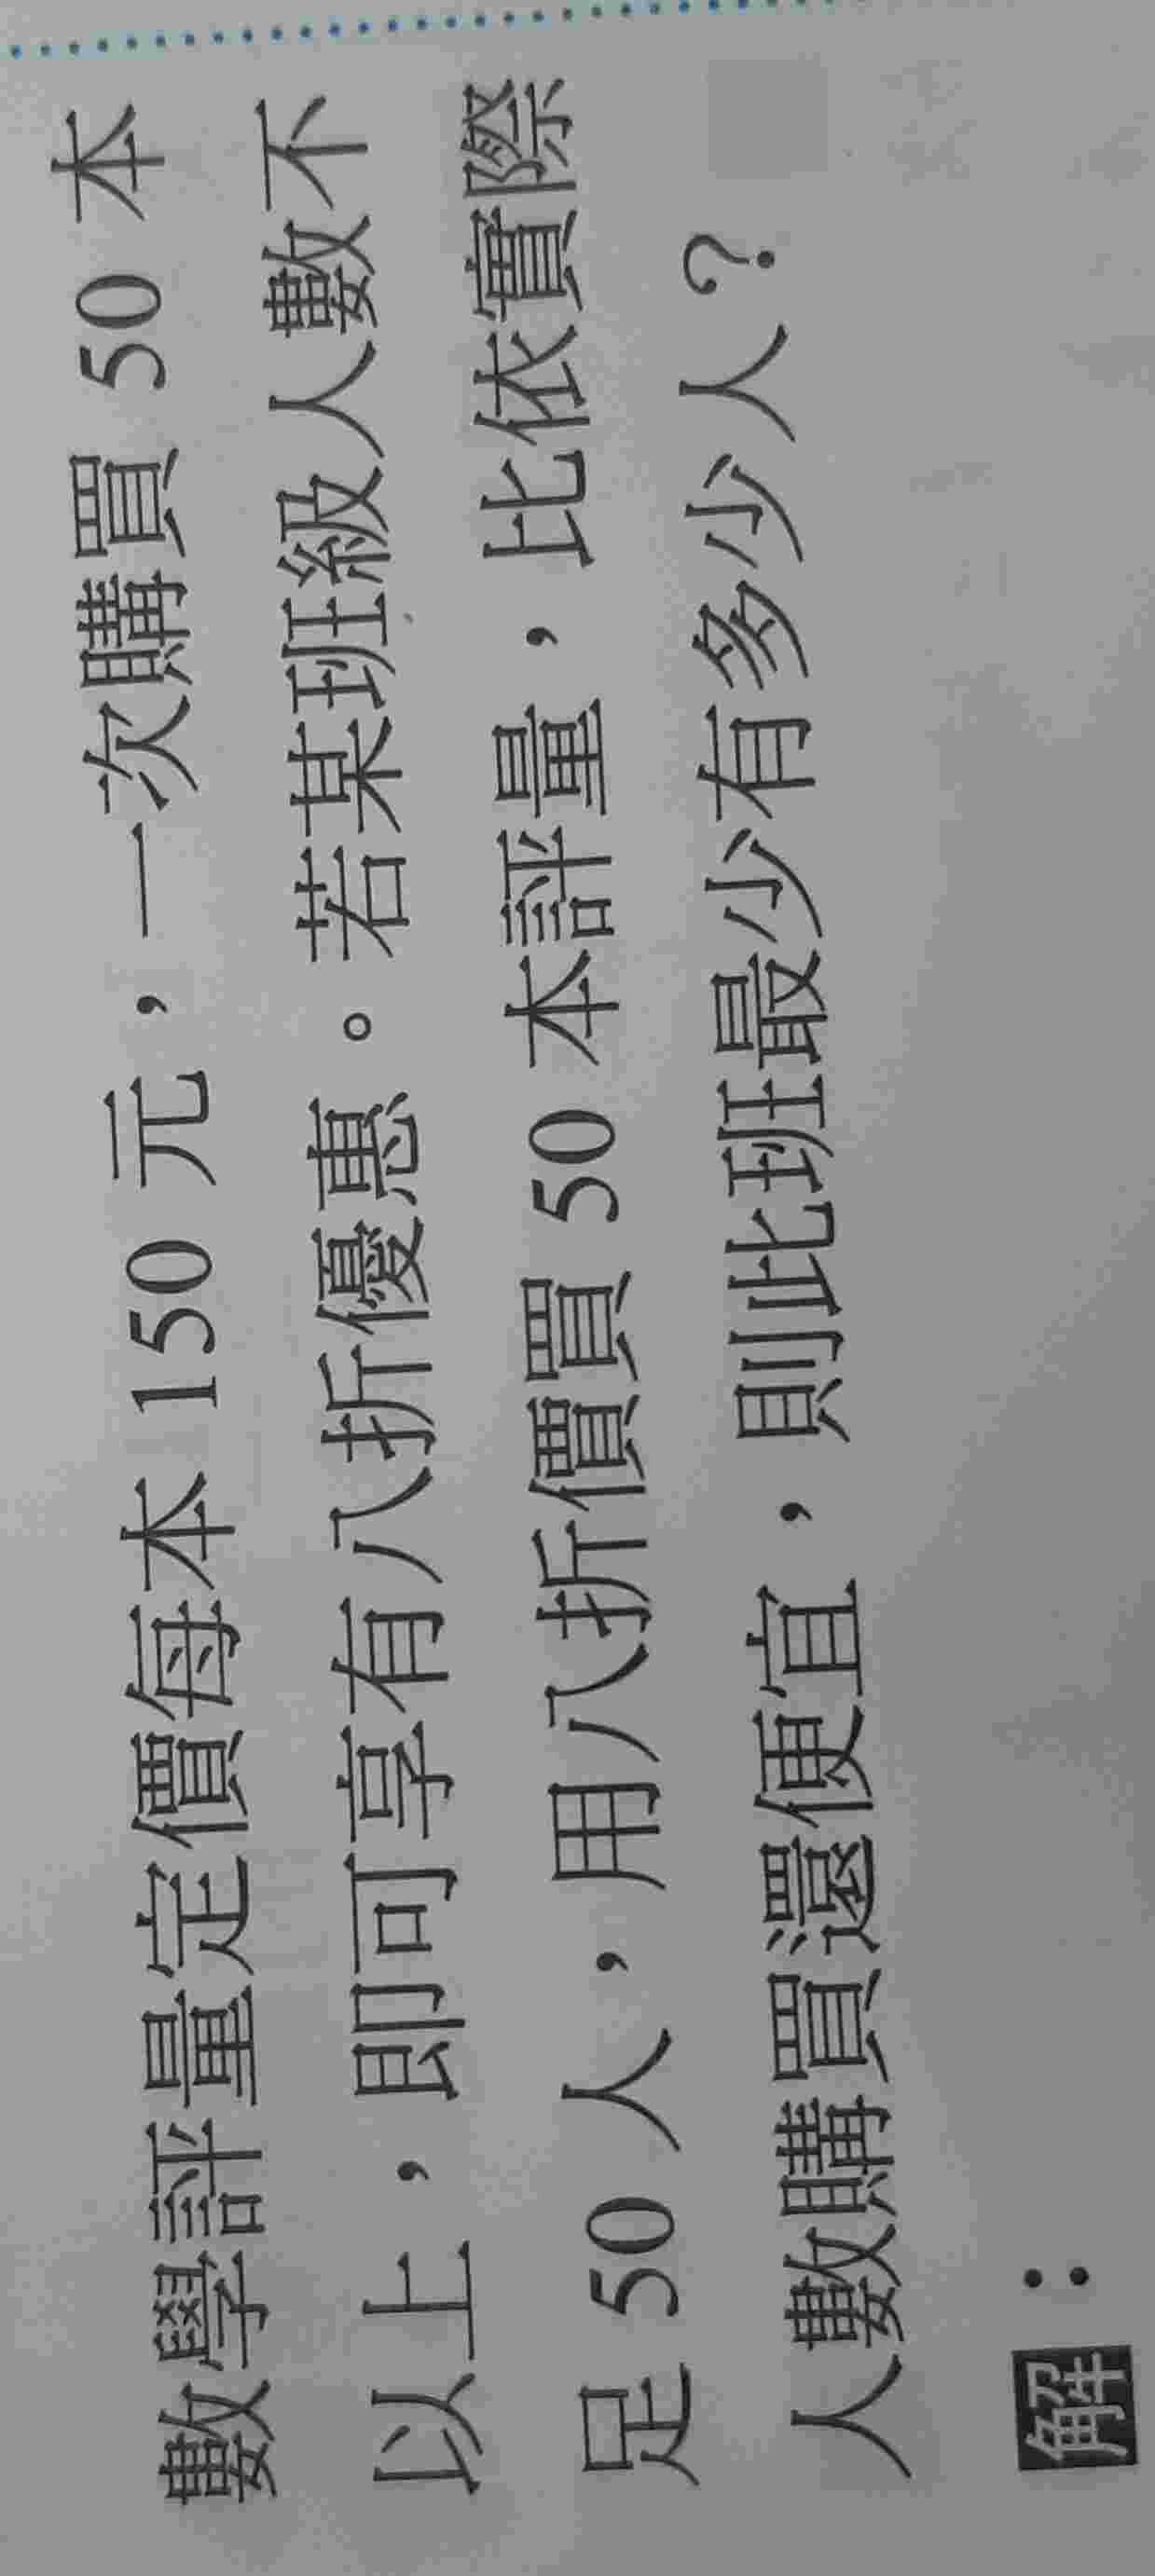 數學評量定價每本 150 元，一次購買 50 本
以上，即可享有八折優惠。若某班級人數不
足 50 人，用八折價買 50 本評量，比依實際
人數購買還便宜，則此班最少有多少人？
解：